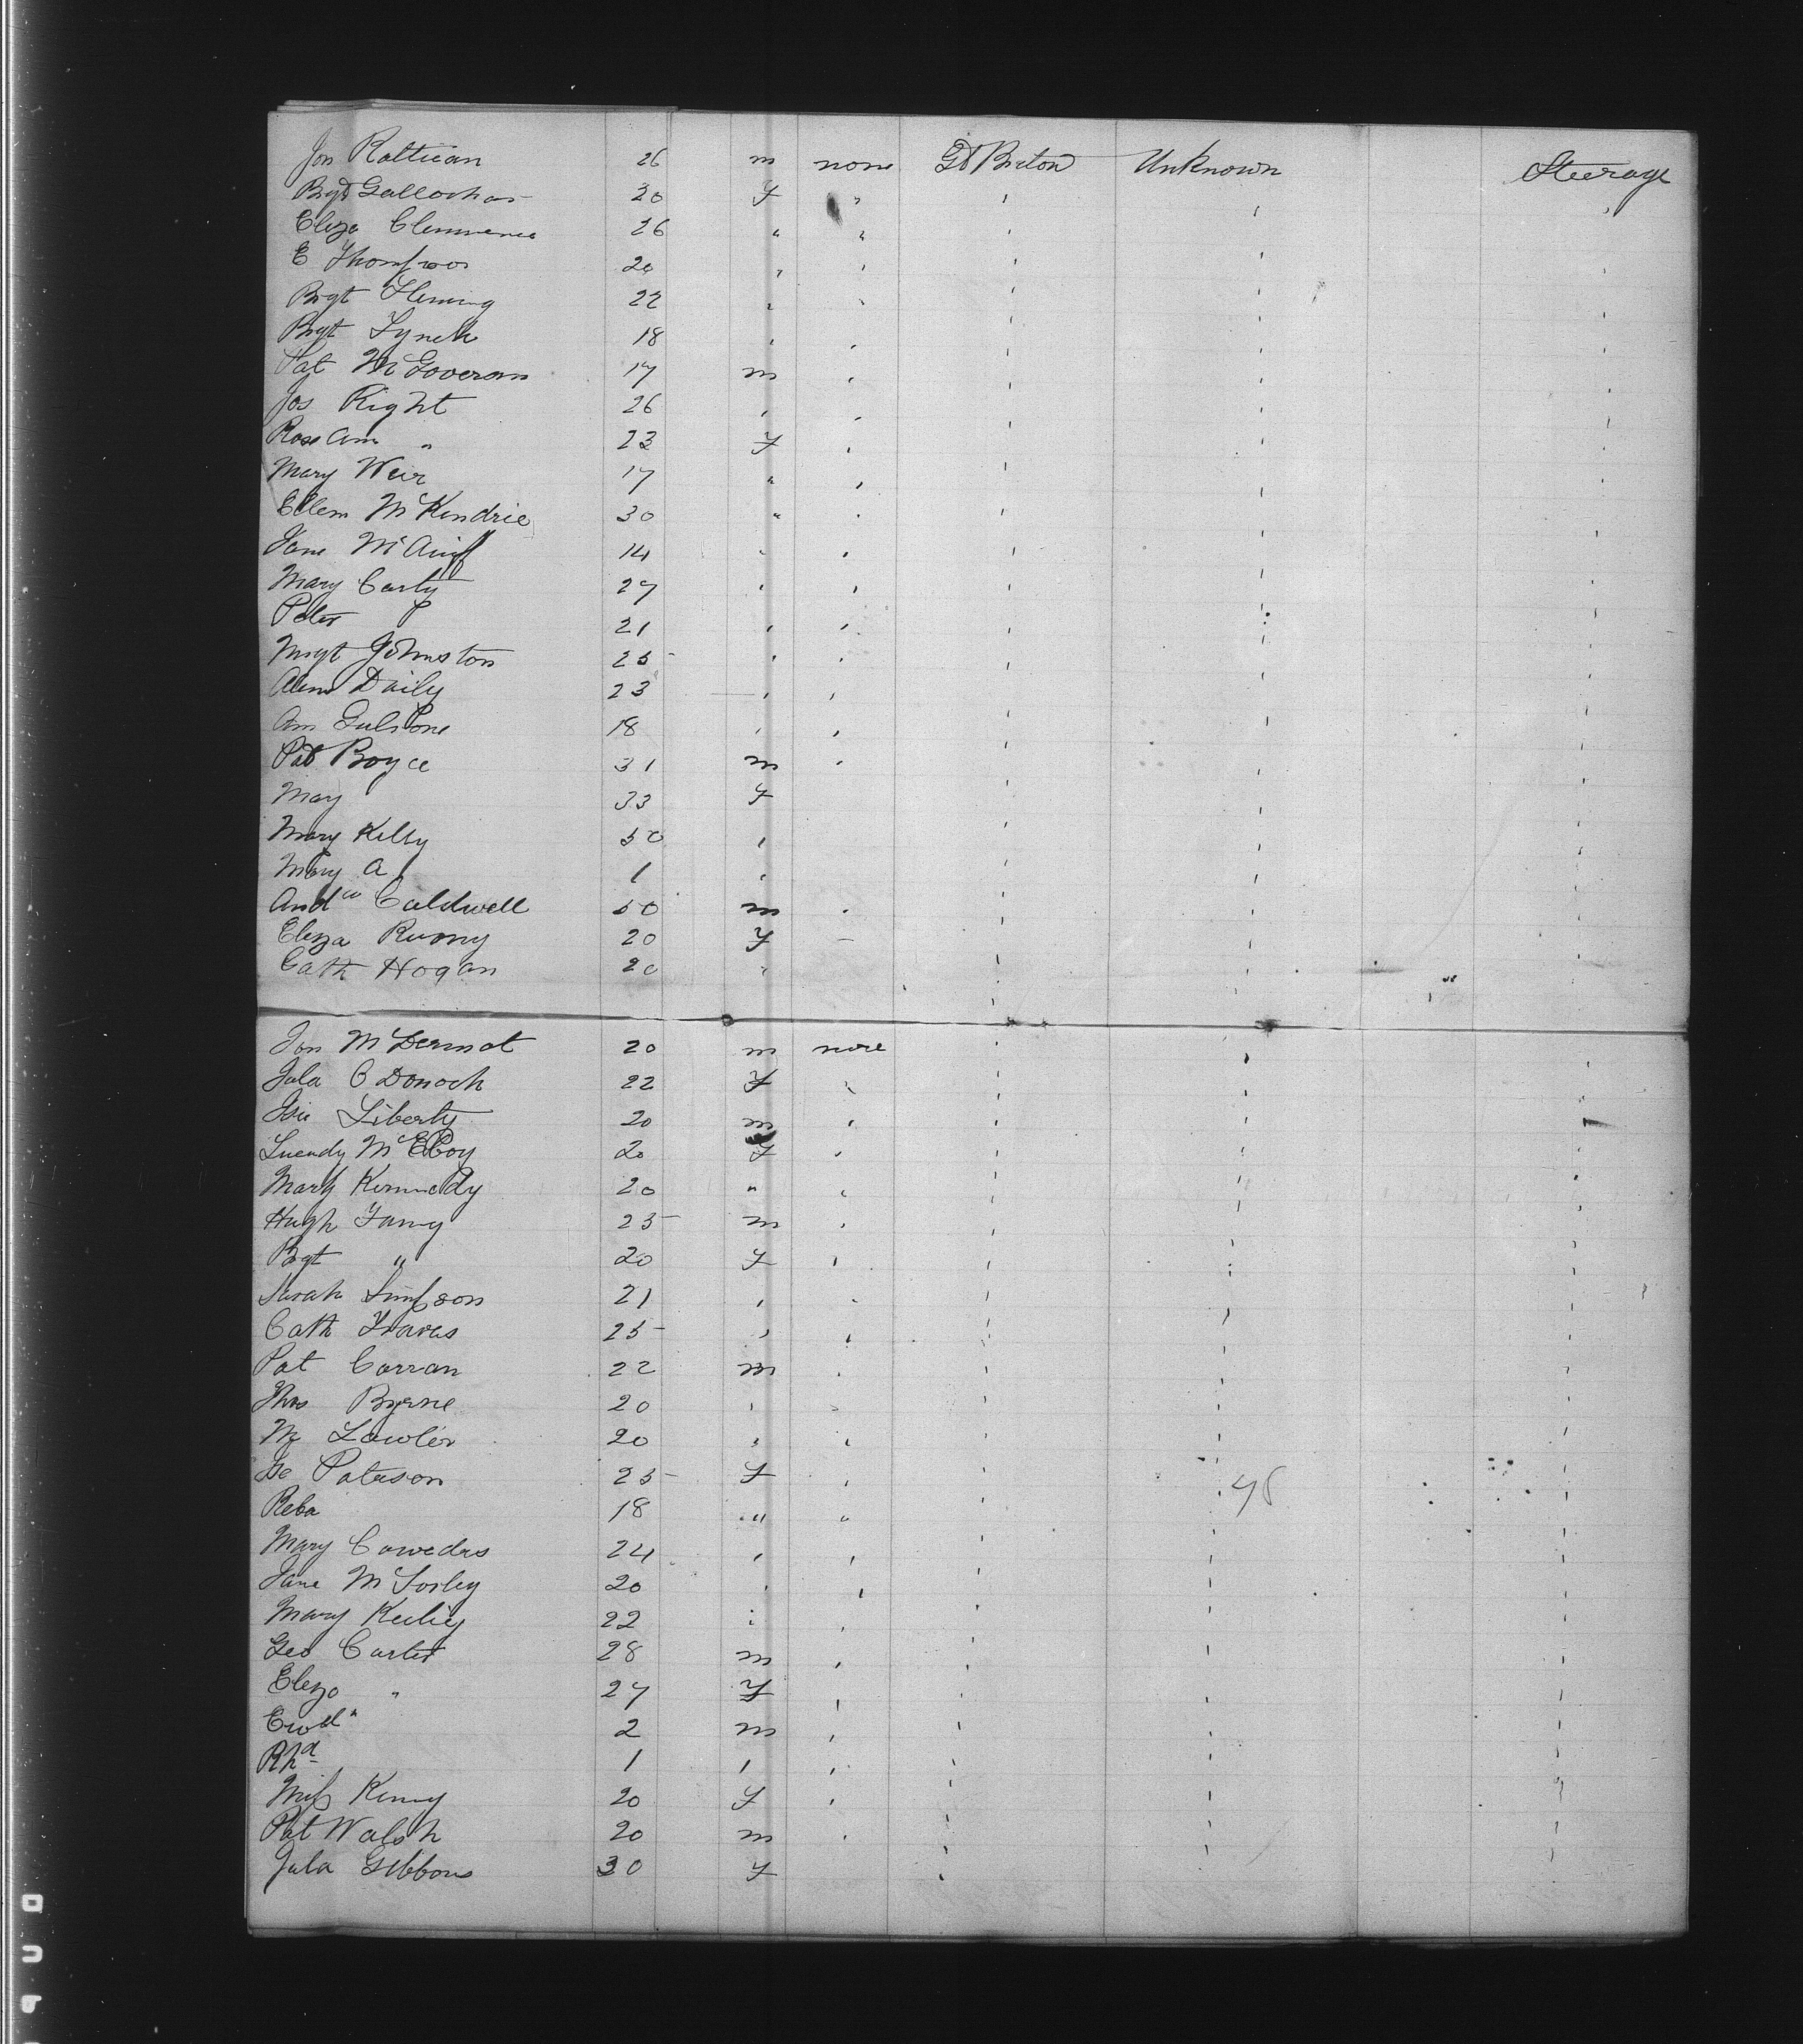 Jon Rattican 26 m none Gt Briton Unknown Steerage
Bgt Gallochar 20 F " ' ' '
Eliza Clemmence 26 " " ' ' '
E Thompson 20 " ' ' ' '
Brgt Fleming 22 " " ' ' '
Brgt Lynch 18 ' ' ' ' '
Pat McGoveran 17 m ' ' ' '
Jos Right 26 ' ' ' ' '
Rose Ann " 23 F ' ' ' '
Mary Weir 17 " ' ' ' '
Ellen McKendrie 30 " ' ' ' '
Jane 14 ' ' ' ' '
Mary Carty 27 ' ' ' ' '
Peter 21 ' ' ' ' '
Mrgt Johnston 25 ' ' ' ' '
Ann Daily 23 ' ' ' ' '
Ann 18 ' ' ' ' '
Pat Boyce 31 m ' ' ' '
Mary 33 F ' ' '
Mary Kelly 50 ' ' ' '
Mary A 1 ' ' ' '
Andw Caldwell 50 m ' ' ' '
Eliza Ruony 20 F - ' ' '
Cath Hogan 20 " ' ' '
Jon McDermot 20 m none ' ' '
Jula O Donoch 22 F " ' ' '
Liberty 20 m ' ' ' '
McElroy 20 F ' ' ' '
Mary Kennedy 20 " ' ' ' '
Hugh 25 m ' ' ' '
Bgt " 20 F ' ' ' '
Sarah Simpson 21 ' ' ' ' '
Cath Travas 25 ' ' ' ' '
Pat Carran 22 m ' ' ' '
Thos Byrne 20 ' ' ' ' '
M Lawler 20 ' ' ' ' '
Pateson 25 F ' ' ' '
Reba 18 " " ' ' '
Mary 24 ' ' ' ' '
Jane McSorley 20 ' ' ' ' '
Mary Keeliey 22 ' ' ' ' '
Geo Carter 28 m ' ' ' '
Eliza " 27 F ' ' ' '
Ewd " 2 m ' ' ' '
Rhd 1 ' ' ' ' '
Miss Kenny 20 F ' ' ' '
Pat Walsh 20 m ' ' ' '
Jula Gibbons 30 F ' ' '